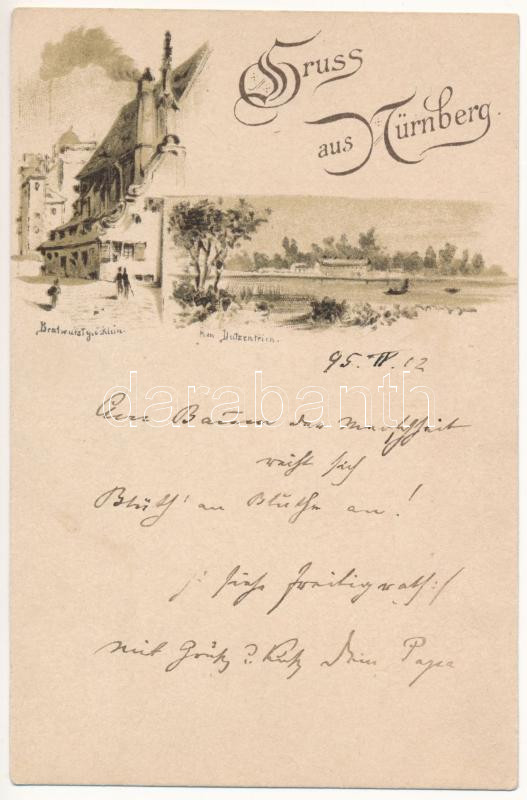 Gruss
aus Nürnberg.
Bratwurstglöcklein.
Am Dutzendteich.
95. IV. 12
Am Baum der Menschheit
reiht sich
Blüth' an Blüthe an!
/: siehe Freiligrath :/
mit Gruß & Kuß Dein Papa
darabanth